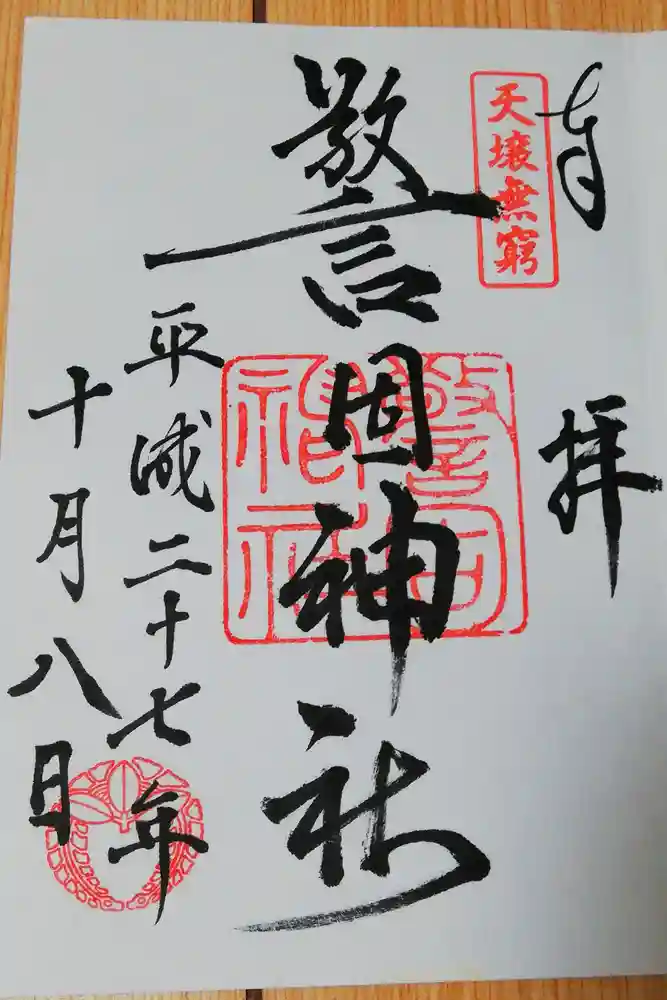 奉拝
天壌無窮
警固神社
平成二十七年
十月八日